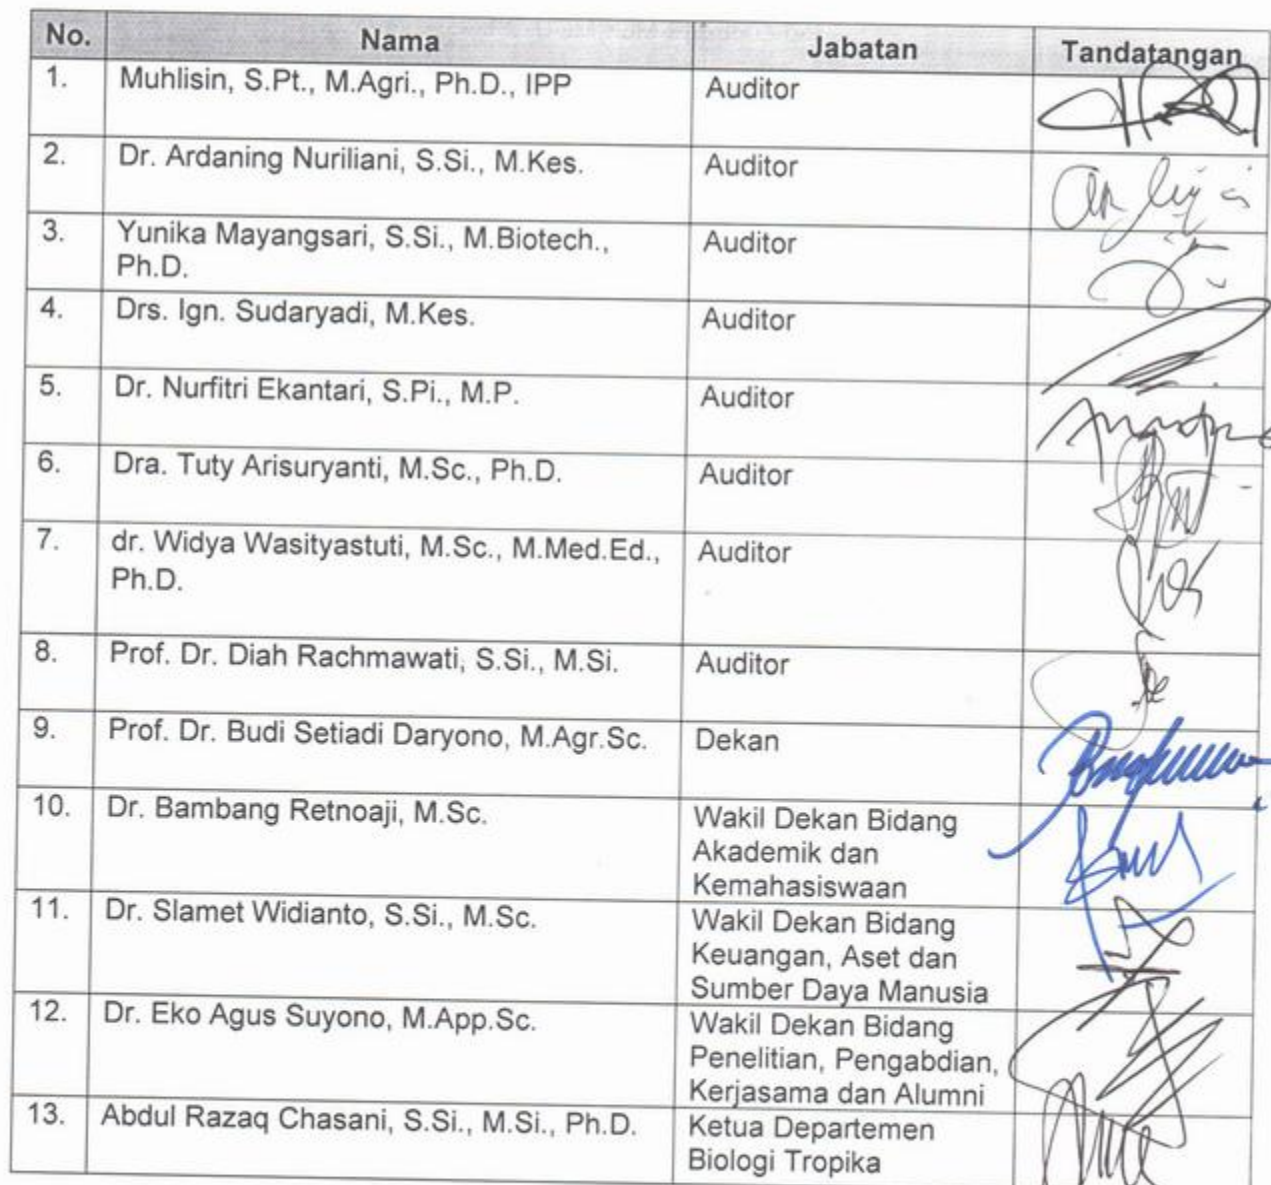 No. Nama Jabatan Tandatangan
1. Muhlisin, S.Pt., M.Agri., Ph.D., IPP Auditor
2. Dr. Ardaning Nuriliani, S.Si., M.Kes. Auditor
3. Yunika Mayangsari, S.Si., M.Biotech., Auditor
Ph.D.
4. Drs. Ign. Sudaryadi, M.Kes. Auditor
5. Dr. Nurfitri Ekantari, S.Pi., M.P. Auditor
6. Dra. Tuty Arisuryanti, M.Sc., Ph.D. Auditor
7. dr. Widya Wasityastuti, M.Sc., M.Med.Ed., Auditor
Ph.D.
8. Prof. Dr. Diah Rachmawati, S.Si., M.Si. Auditor
9. Prof. Dr. Budi Setiadi Daryono, M.Agr.Sc. Dekan
10. Dr. Bambang Retnoaji, M.Sc. Wakil Dekan Bidang
Akademik dan
Kemahasiswaan
11. Dr. Slamet Widianto, S.Si., M.Sc. Wakil Dekan Bidang
Keuangan, Aset dan
Sumber Daya Manusia
12. Dr. Eko Agus Suyono, M.App.Sc. Wakil Dekan Bidang
Penelitian, Pengabdian,
Kerjasama dan Alumni
13. Abdul Razaq Chasani, S.Si., M.Si., Ph.D. Ketua Departemen
Biologi Tropika